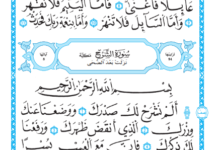 عَآئِلًا فَأَغْنَىٰ ۝ فَأَمَّا ٱلْيَتِيمَ فَلَا تَقْهَرْ
۝ وَأَمَّا ٱلسَّآئِلَ فَلَا تَنْهَرْ ۝ وَأَمَّا بِنِعْمَةِ رَبِّكَ فَحَدِّثْ ۝
سُورَةُ ٱلشَّرْحِ مَكِّيَّة
نزلت بعد الضحى
بِسْمِ ٱللَّهِ ٱلرَّحْمَٰنِ ٱلرَّحِيمِ
أَلَمْ نَشْرَحْ لَكَ صَدْرَكَ ۝ وَوَضَعْنَا عَنكَ
وِزْرَكَ ۝ ٱلَّذِىٓ أَنقَضَ ظَهْرَكَ ۝ وَرَفَعْنَا
لَكَ ذِكْرَكَ ۝ فَإِنَّ مَعَ ٱلْعُسْرِ يُسْرًا